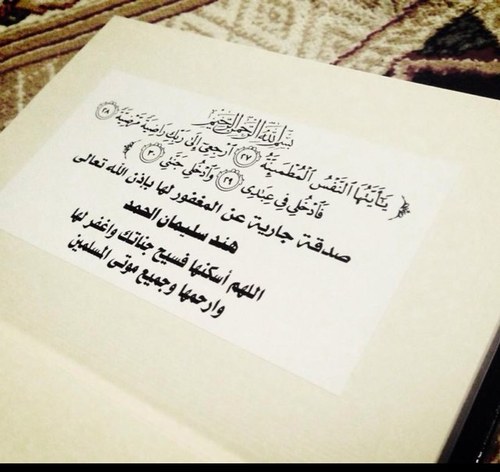 بِسْمِ اللَّهِ الرَّحْمَٰنِ الرَّحِيمِ
﴿ يَٰٓأَيَّتُهَا ٱلنَّفۡسُ ٱلۡمُطۡمَئِنَّةُ ٢٧ ٱرۡجِعِيٓ إِلَىٰ رَبِّكِ رَاضِيَةٗ مَّرۡضِيَّةٗ ٢٨
فَٱدۡخُلِي فِي عِبَٰدِي ٢٩ وَٱدۡخُلِي جَنَّتِي ٣٠ ﴾
صدقة جارية عن المغفور لها بإذن الله تعالى
هند سليمان الحمد
اللهم أسكنها فسيح جناتك واغفر لها
وارحمها وجميع موتى المسلمين